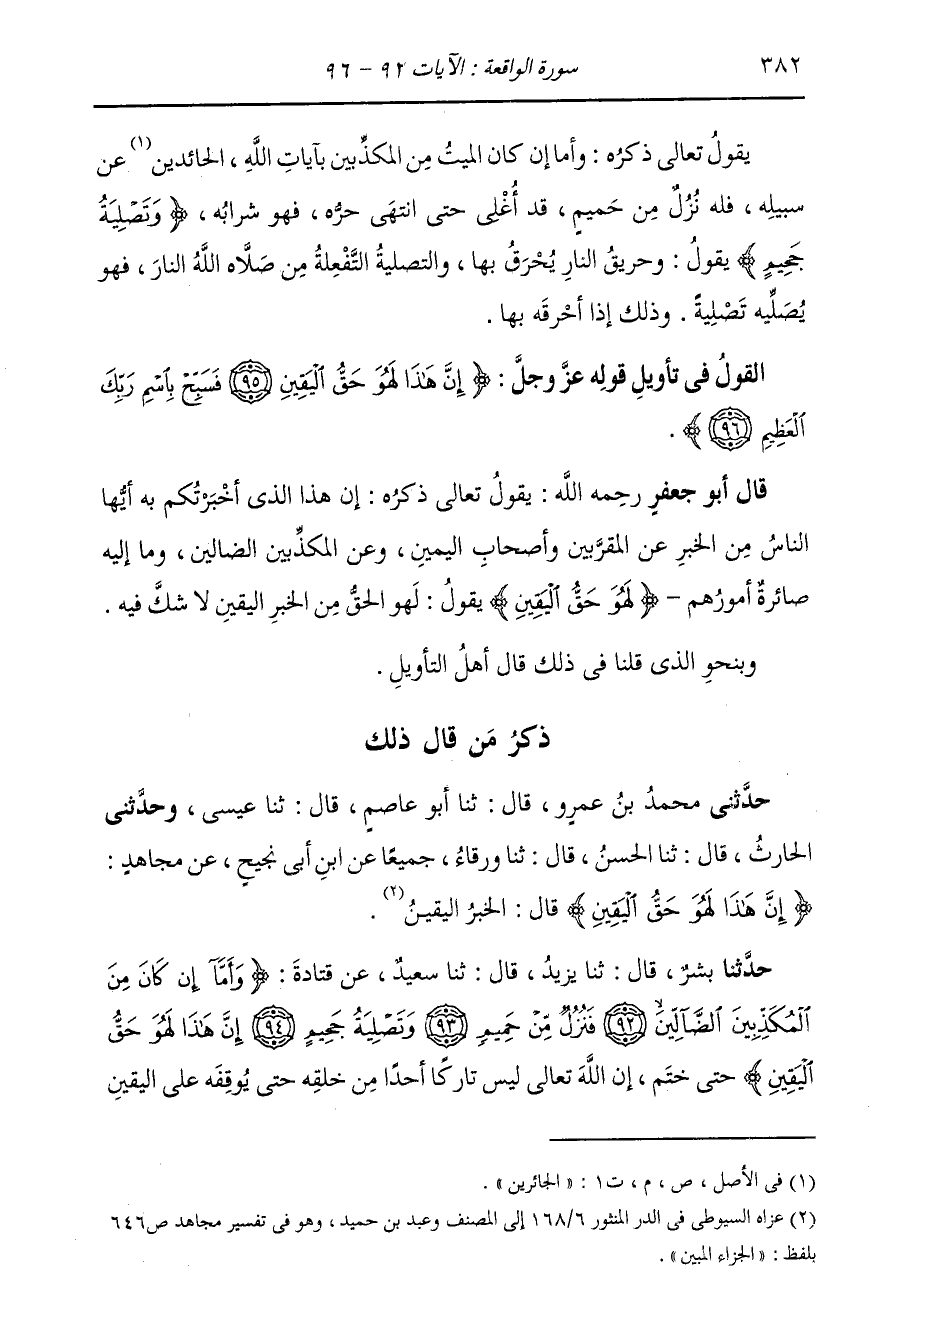 ٣٨٢ سورة الواقعة : الآيات ٩٢ - ٩٦
يقولُ تعالى ذكرُه : وأما إن كان الميتُ مِن المكذِّبين بآياتِ اللَّهِ ، الحائدين(١) عن
سبيلِه ، فله نُزُلٌ مِن حَميمٍ ، قد أُغْلِى حتى انتهَى حرُّه ، فهو شرابُه ، ﴿ وَتَصْلِيَةُ
جَحِيمٍ ﴾ يقولُ : وحريقُ النارِ يُحْرَقُ بها ، والتصليةُ التَّفْعِلةُ مِن صَلَّاه اللَّهُ النارَ ، فهو
يُصَلِّيه تَصْلِيةً . وذلك إذا أحْرقَه بها .
القولُ فى تأويلِ قولِه عزَّ وجلَّ : ﴿ إِنَّ هَٰذَا لَهُوَ حَقُّ ٱلْيَقِينِ ۝٩٥ فَسَبِّحْ بِٱسْمِ رَبِّكَ
ٱلْعَظِيمِ ۝٩٦ ﴾ .
قال أبو جعفرٍ رحِمه اللَّه : يقولُ تعالى ذكرُه : إن هذا الذى أخْبَرْتُكم به أيُّها
الناسُ مِن الخبرِ عن المقرَّبين وأصحابِ اليمينِ ، وعن المكذِّبين الضالين ، وما إليه
صائرةٌ أمورُهم - ﴿ لَهُوَ حَقُّ ٱلْيَقِينِ ﴾ يقولُ : لَهو الحقُّ مِن الخبرِ اليقينِ لا شكَّ فيه .
وبنحوِ الذى قلنا فى ذلك قال أهلُ التأويلِ .
ذكرُ مَن قال ذلك
حدَّثنى محمدُ بنُ عمرٍو ، قال : ثنا أبو عاصمٍ ، قال : ثنا عيسى ، وحدَّثنى
الحارثُ ، قال : ثنا الحسنُ ، قال : ثنا ورقاءُ ، جميعًا عن ابنِ أبى نَجيحٍ ، عن مجاهدٍ :
﴿ إِنَّ هَٰذَا لَهُوَ حَقُّ ٱلْيَقِينِ ﴾ قال : الخبرُ اليقينُ(٢) .
حدَّثنا بشرٌ ، قال : ثنا يزيدُ ، قال : ثنا سعيدٌ ، عن قتادةَ : ﴿ وَأَمَّآ إِن كَانَ مِنَ
ٱلْمُكَذِّبِينَ ٱلضَّآلِّينَ ۝٩٢ فَنُزُلٌ مِّنْ حَمِيمٍ ۝٩٣ وَتَصْلِيَةُ جَحِيمٍ ۝٩٤ إِنَّ هَٰذَا لَهُوَ حَقُّ
ٱلْيَقِينِ ﴾ حتى ختَم ، إن اللَّهَ تعالى ليس تاركًا أحدًا مِن خلقِه حتى يُوقِفَه على اليقينِ
(١) فى الأصل ، ص ، م ، ت١ : « الجائرين » .
(٢) عزاه السيوطى فى الدر المنثور ١٦٨/٦ إلى المصنف وعبد بن حميد ، وهو فى تفسير مجاهد ص٦٤٦
بلفظ : « الجزاء المبين » .